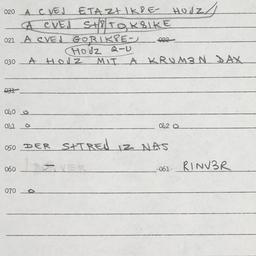 020 A CVEJ ETAZHIKPE HOUZ
A CVEJ SHTOKBIKE
021 A CVEJ GORIKPE-
HOUZ Q-U
030 A HOUZ MIT A KRUM3N DAX
031
040 o
041 o 042 o
050 DER SHTREJ IZ NAS
060 - 061 RINV3R
070 o